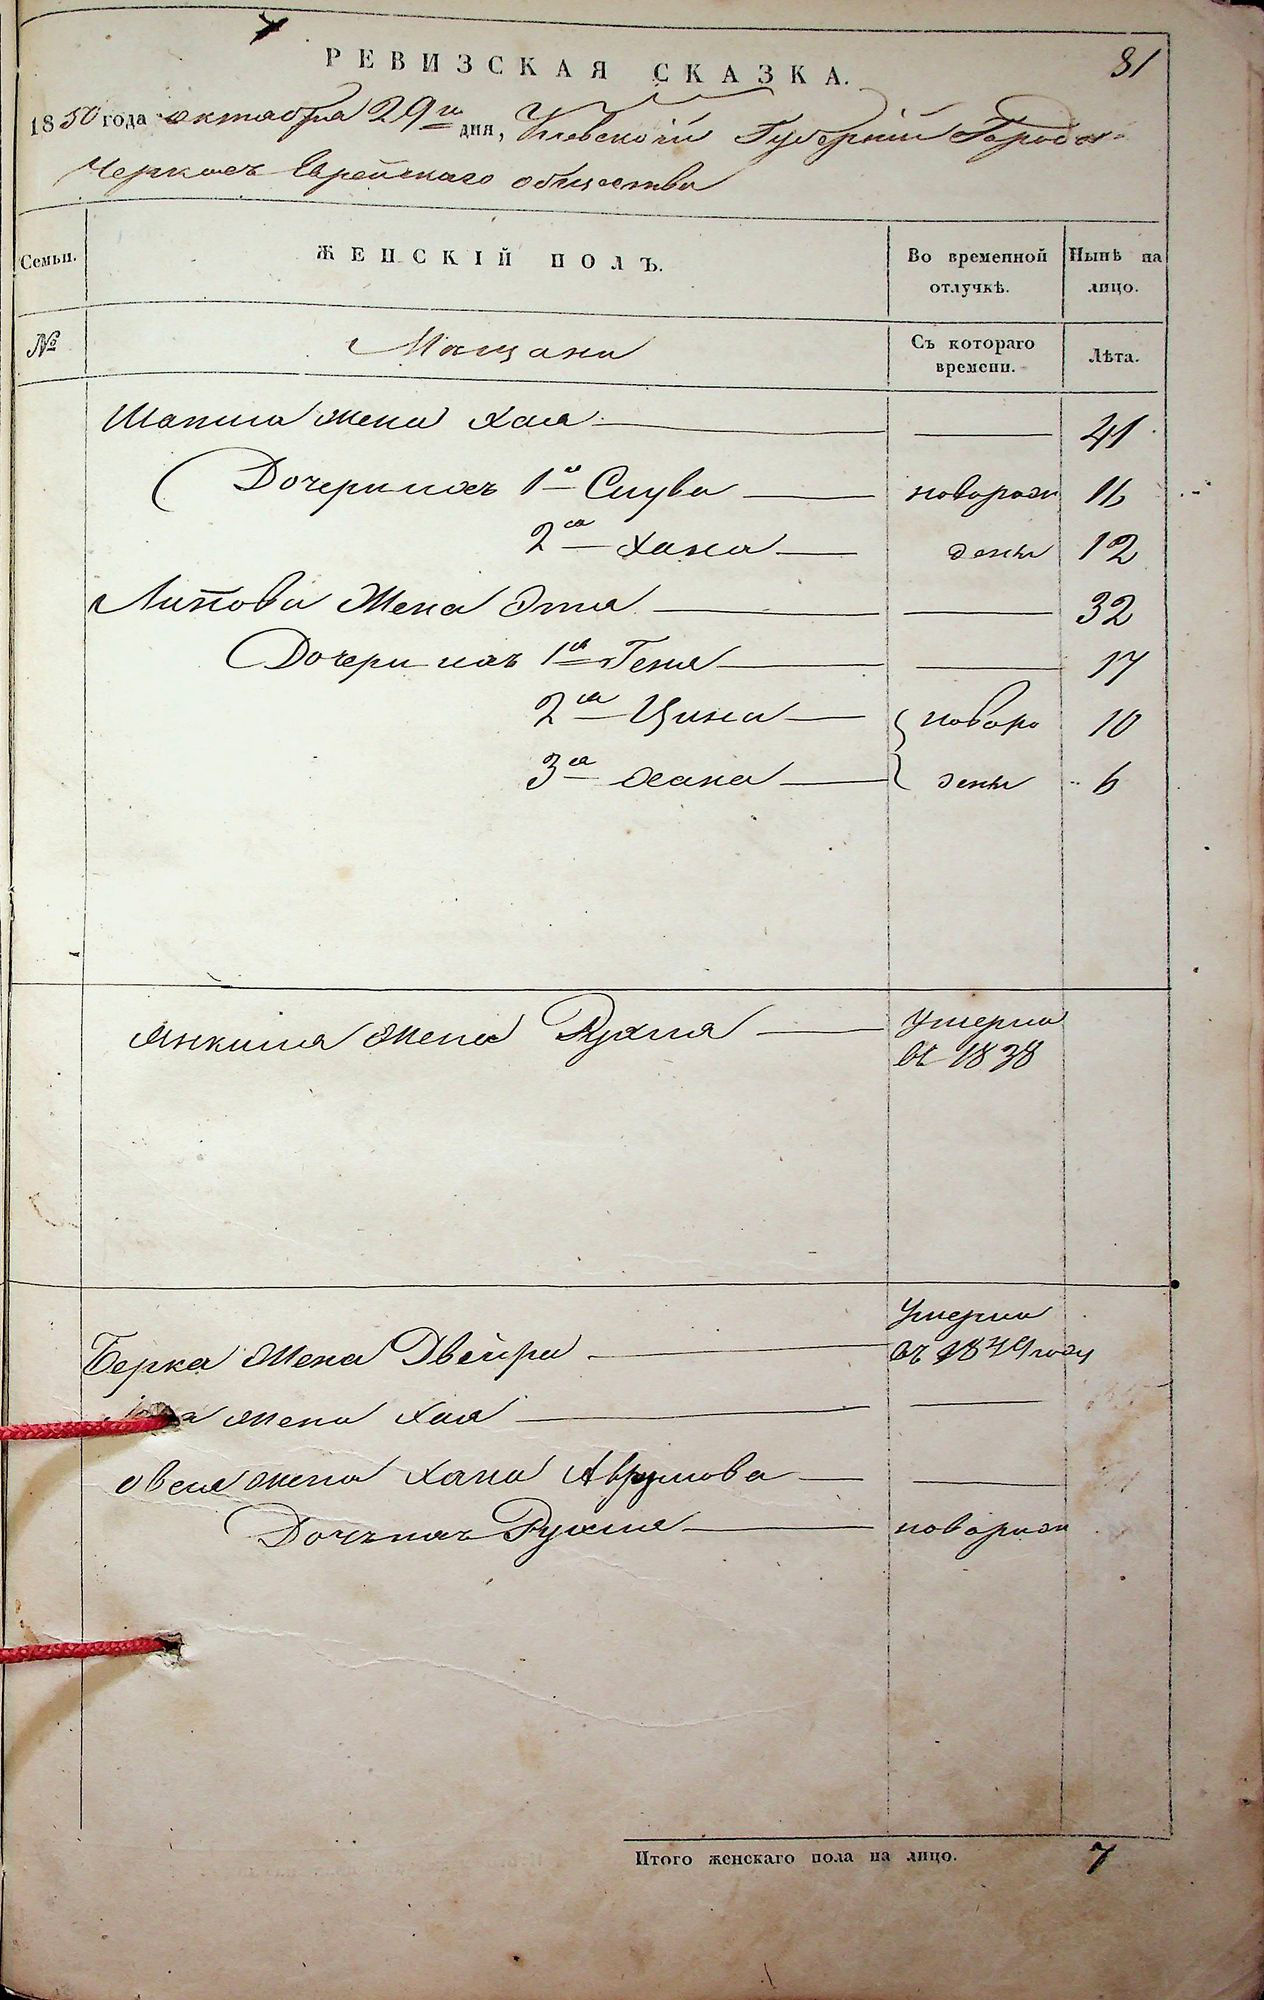 81
РЕВИЗСКАЯ СКАЗКА.
1850 года октября 29го дня, Киевской Губерніи Города
Черкасъ Еврейскаго общества
Семьи. ЖЕНСКІЙ ПОЛЪ. Во временной отлучкѣ. Нынѣ на лицо.
№ Мещане Съ котораго времени. Лѣта.
жена Хая 41
Дочери ихъ 1я Слува новорож 16
2я Хана дены 12
жена Этя 32
Дочери ихъ 1я Геня 17
2я Цина новоро 10
3я Хана дены 6
Янкиля жена Рухля умерла
въ 1838
Берка жена Двейра Умерла
въ 1849 году
жена Хая
Овсея жена Хана Аврумова
Дочь ихъ Рухля новорож
Итого женскаго пола на лицо. 7